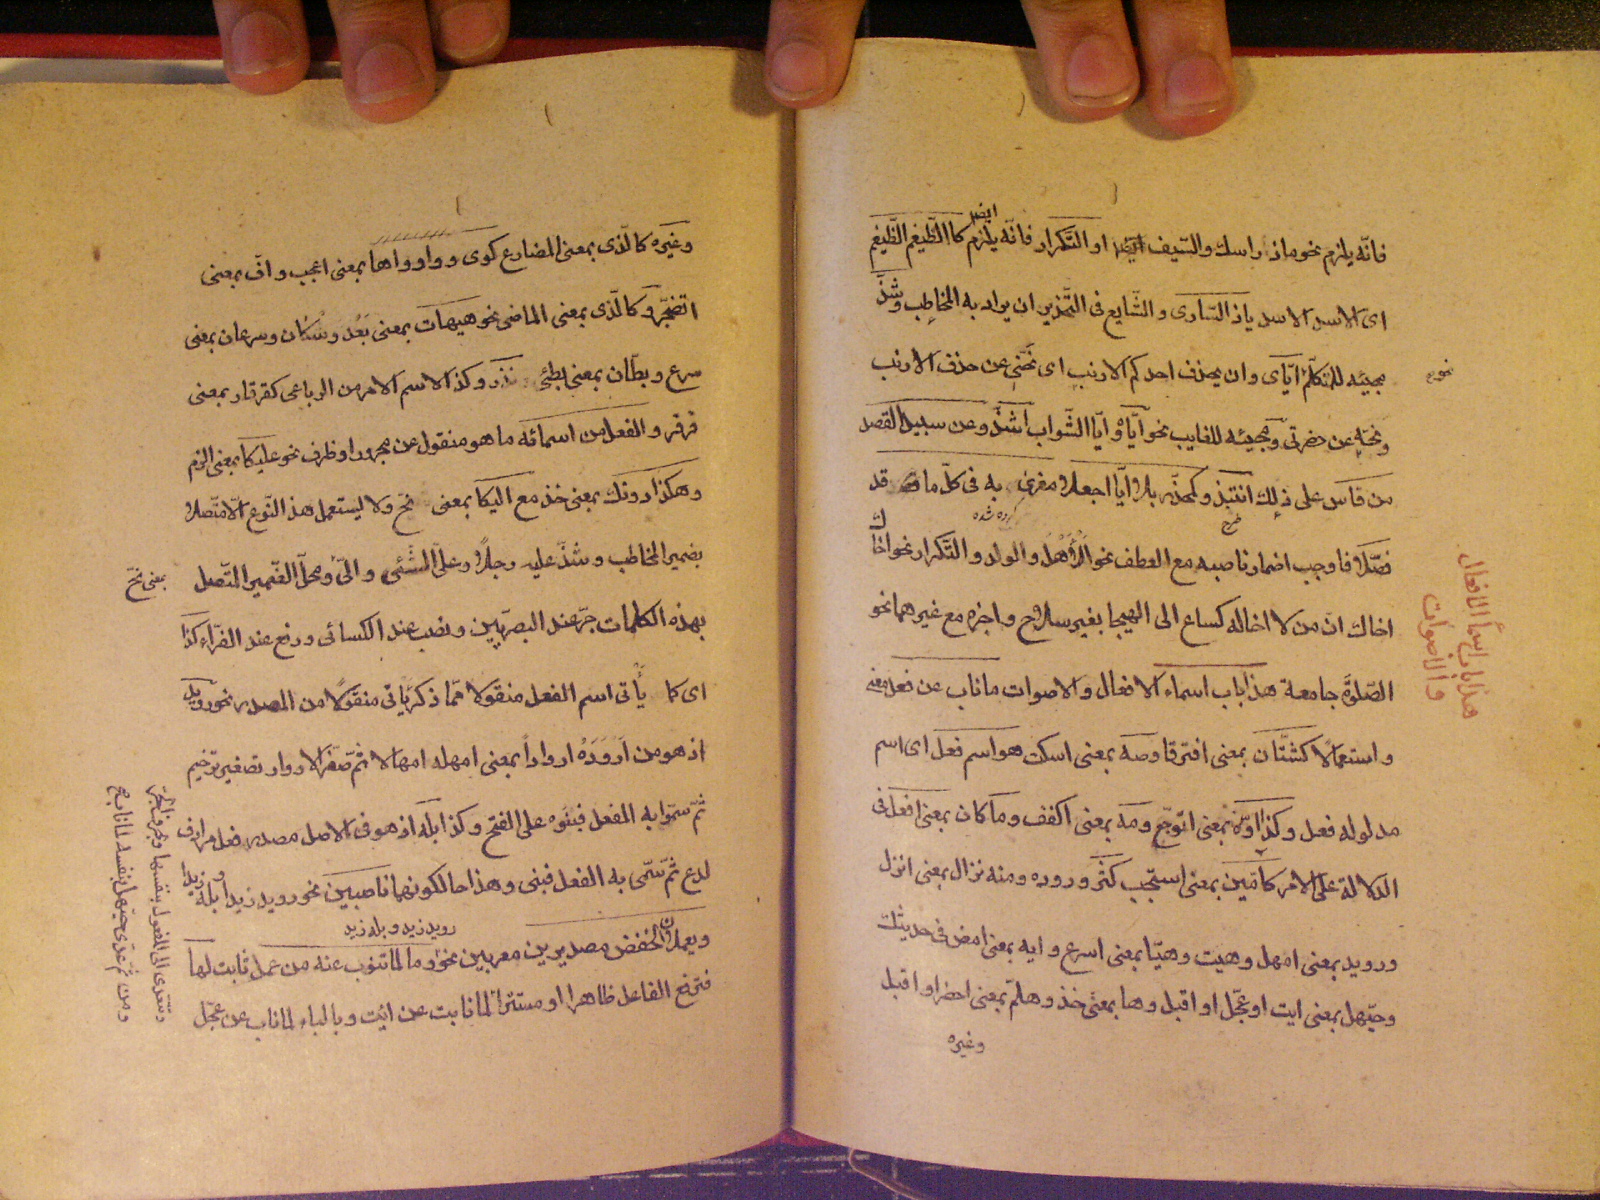 فانّه يلزم نحو ماز راسك والسّيف او التّكرار فانّه يلزم ايضا كاالضّيغم الضّيغم
اى الاسد الاسد ياذ السّارى و الشّايع فى التّحذير ان يراد به المخاطب وشذّ
مجيئه للمتكلّم نحو ايّاى وان يحذف احدكم الارنب اى نحّنى عن حذف الارنب
ونحّه عن حضرتى ومجيئه للغايب نحو ايّاه وايّا الشّواب اشذّ وعن سبيل القصد
من قاس على ذلك انتبذ وكمحذّر بلا ايّا اجعلا مغرى به فى كلّ ما قد
كرده شده
طرح
فصّلا فاوجب اضمار ناصبه مع العطف نحو الاهل والولد والتّكرار نحو اخاك
اخاك انّ من لا اخاله كساع الى الهيجا بغير سلاح واجزه مع غيرهما نحو
الصّلوة جامعة هذا باب اسماء الافعال والاصوات ما ناب عن فعل معنى
واستعمالا كشتّان بمعنى افترقا وصه بمعنى اسكت هو اسم فعل اى اسم
مدلوله فعل وكذا اوّه بمعنى اتوجّع ومه بمعنى اكفف وما كان بمعنى افعل فى
الدلالة على الامر كامين بمعنى استجب كثر وروده ومنه نزال بمعنى انزل
ورويد بمعنى امهل وهيت وهيّا بمعنى اسرع وايه بمعنى امض فى حديثك
وحيّهل بمعنى ايت او عجّل او اقبل وها بمعنى خذ وهلمّ بمعنى احضر او اقبل
وغيره
هذا باب اسماء الافعال
والاصوات
وغيره كالّذى بمعنى المضارع كوى و وا وواها بمعنى اعجب وافّ بمعنى
اتضجّر وكالّذى بمعنى الماضى نحو هيهات بمعنى بَعُد وشكان وسرعان بمعنى
سرع وبطّان بمعنى بطئ نذر وكذا الاسم الامر من الرباعى كقرقار بمعنى
قرقر والفعل من اسمائه ما هو منقول عن مجرور او ظرف نحو عليكا بمعنى الزم
وهكذا دونك بمعنى خذ مع اليكا بمعنى نحّ ولا يستعمل هذا النّوع الّا متّصلا
بضمير المخاطب وشذّ عليه رجلا وعلىّ الشّئى والىّ ومحلّ الضّمير المتّصل
بمعنى نحّ
بهذه الكلمات جرّ عند البصريين ونصب عند الكسائى ورفع عند الفرّاء كذا
اى كما يأتى اسم الفعل منقولا ممّا ذكر يأتى منقولا من المصدر نحو رويد
اذ هو من اَروَدَهُ ارواداً بمعنى امهله امهالا ثمّ صغّر الارواد تصغير ترخيم
ثمّ سمّوا به الفعل فبنوه على الفتح وكذا بله اذ هو فى الاصل مصدر فعل مرادف
لدع ثمّ سمّى به الفعل فبنى وهذا حالكونهما ناصبين نحو رويد زيدا وبله زيدا
رويد زيد و بله زيد
ويعملان الخفض مصدرين معربين نحو وما لما تنوب عنه من عمل ثابت لها
فترفع الفاعل ظاهرا او مستترا لما نابت عن ائت وبالباء لما ناب عن عجّل
وتتعدى الى المفعول بنفسها وبحرف الجرّ
ومن ثمّ عدّى حيّهل بنفسه لما ناب